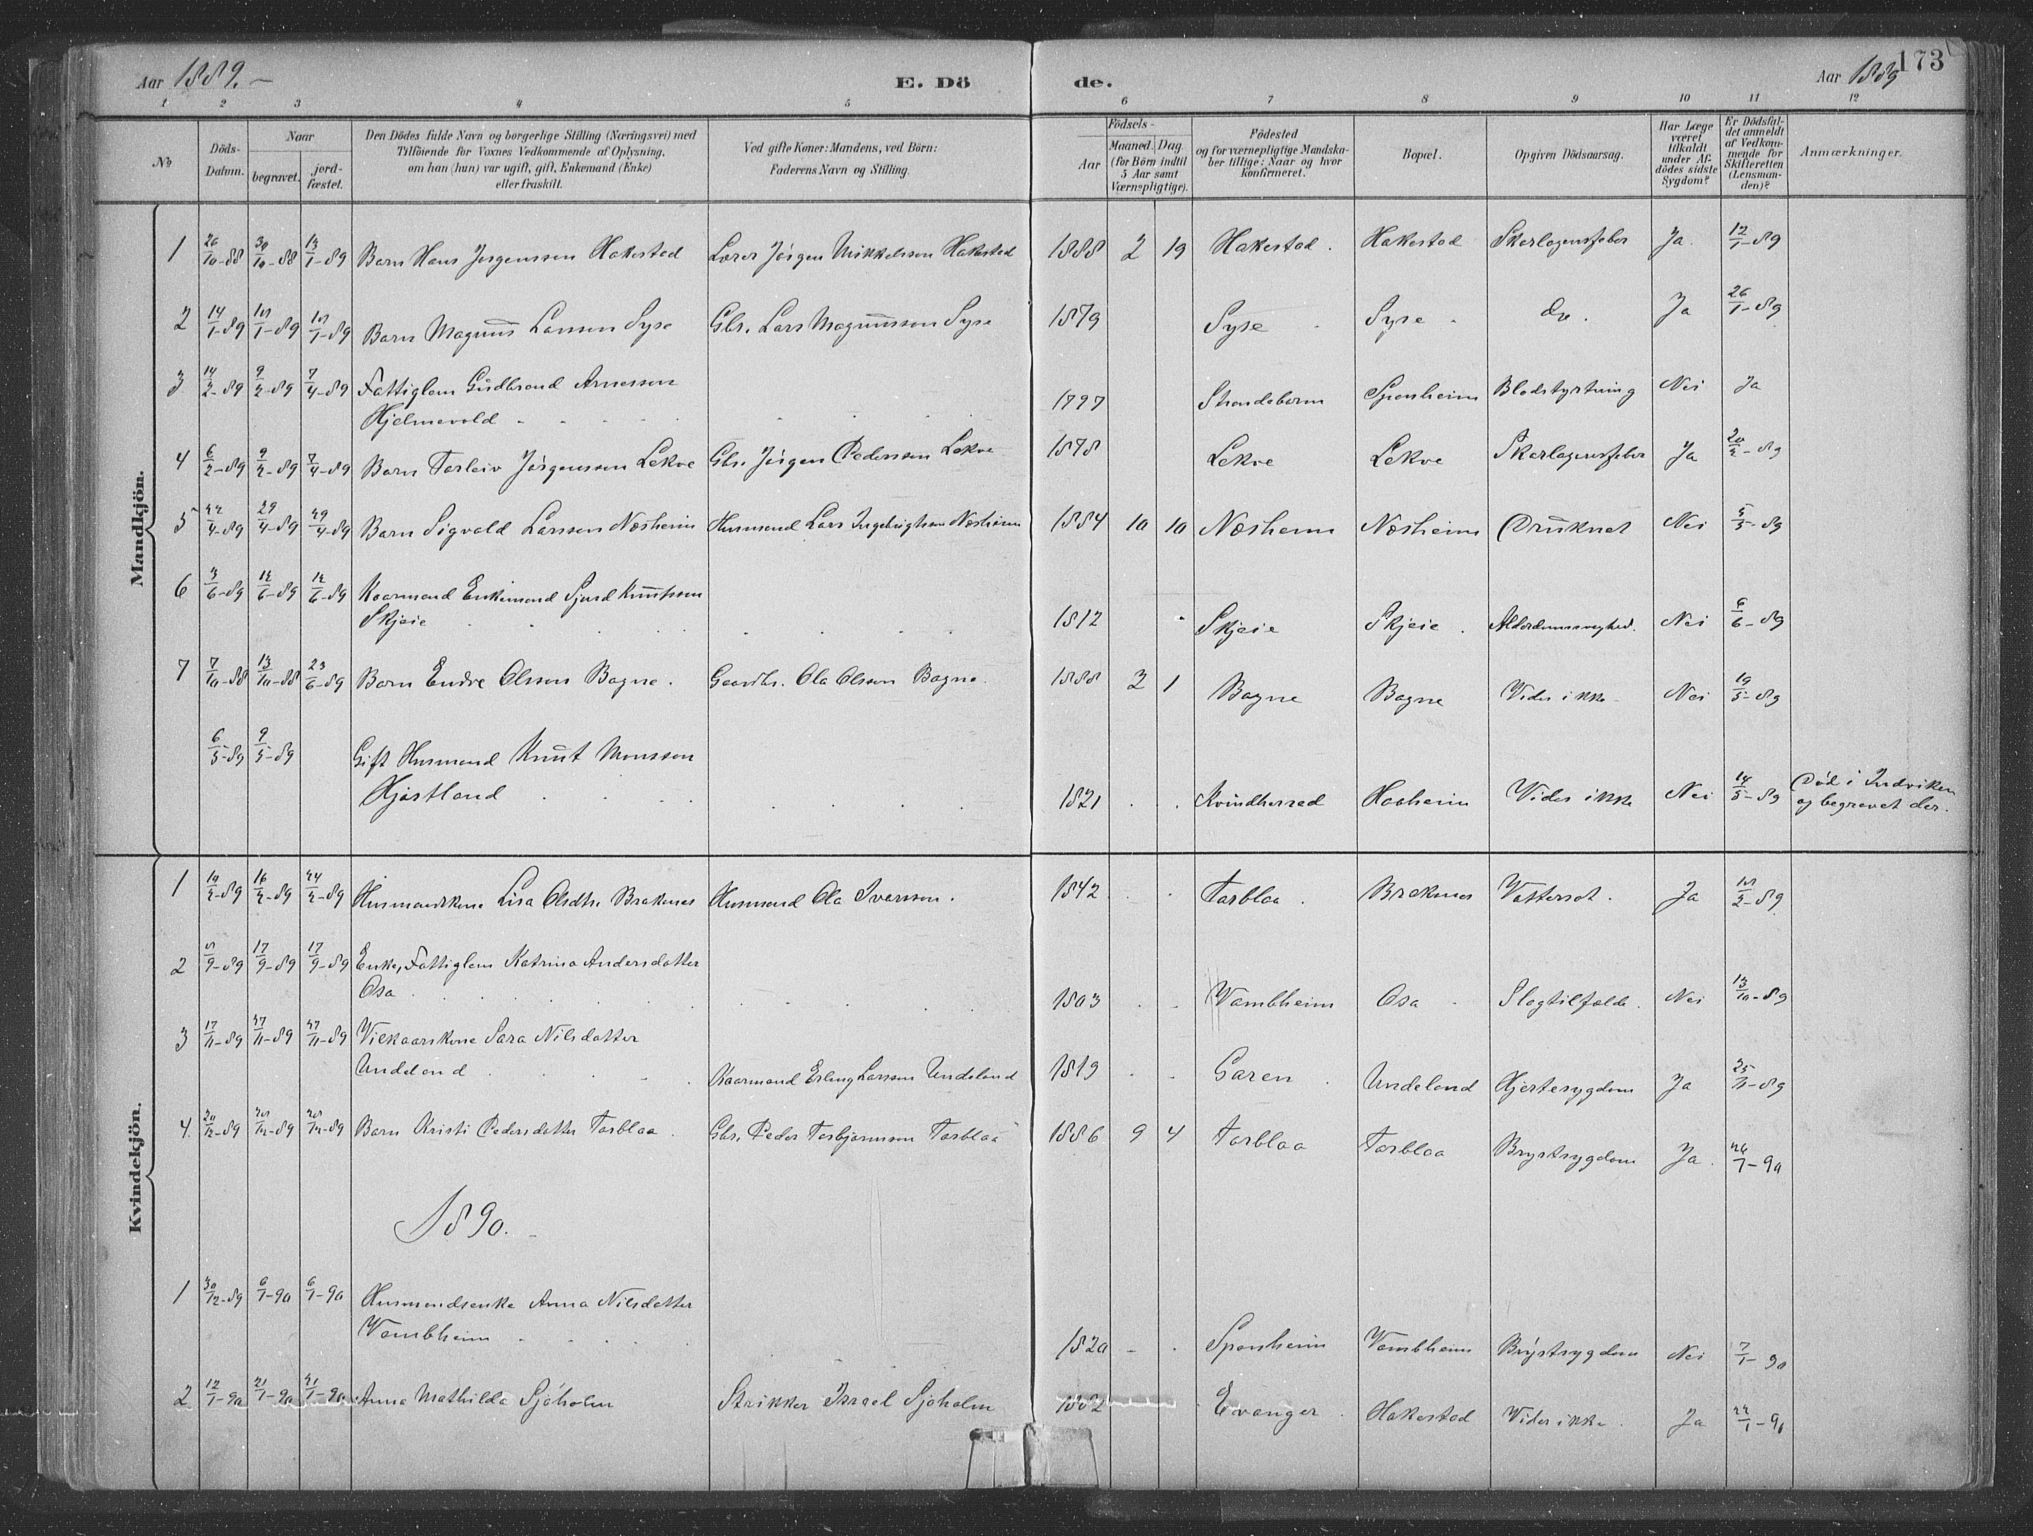 Aar 1889.- E. Dö de. Aar 1889 173
1 2 3 4 5 6 7 8 9 10 11 12
No
Döds-Datum.
Naar
begravet.
jord-fæstet.
Den Dödes fulde Navn og borgerlige Stilling (Næringsvei) med
Tilföiende for Voxnes Vedkommende af Oplysning,
om han (hun) var ugift, gift, Enkemand (Enke)
eller fraskilt.
Ved gifte Koner: Mandens, ved Börn:
Faderens Navn og Stilling.
Födsels-
Aar
Maaned. Dag
(for Börn indtil
5 Aar samt
Værnepligtige).
Födested
og for værnepligtige Mandska-
ber tillige: Naar og hvor
konfirmeret.
Bopæl.
Opgiven Dödsaarsag.
Har Læge
været
tilkaldt
under Af-
dödes sidste
Sygdom?
Er Dödsfal-
det anmeldt
af Vedkom-
mende for
Skifteretten
(Lensman-
den)?
Anmærkninger.
Mandkjön.
1 26/10-88 30/10-88 13/1-89 Barn Hans Jørgenssen Hakestad Lærer Jørgen Mikkelssen Hakestad 1888 2 19 Hakestad. Hakestad Skarlagensfeber Ja. 12/1-89
2 14/1-89 18/1-89 18/1-89 Barn Magnus Larssen Syse Gbr. Lars Magnusson Syse 1879 Syse Syse do. Ja 26/1-89
3 14/2-89 9/2-89 7/4-89 Fattiglem Gudbrand Arnesson
Hjelmevold 1797 Strandebarm Sponheim Blodstyrtning Nei Ja
4 6/2-89 9/2-89 7/4-89 Barn Torleiv Jørgensson Lekve Gbr. Jørgen Pedersson Lekve 1878 Lekve Lekve Skarlagensfeber Ja 20/2-89
5 22/4-89 29/4-89 29/4-89 Barn Sigvald Larssen Næsheim Husmand Lars Ingebrigtson Næsheim 1884 10 10 Næsheim Næsheim Druknet Nei 5/5-89
6 3/6-89 12/6-89 12/6-89 Kaarmand Enkemand Sjurd Knutsson
Skjeie 1812 Skjeie Skjeie. Alderdomssvaghed. Nei 6/6-89
7 7/10-88 13/10-88 23/6-89 Barn Endre Olsson Bagne. Gaardbr. Ola Olsson Bagne. 1888 3 1 Bagne Bagne Vides ikke Nei 19/5-89
6/5-89 9/5-89 Gift Husmand Knut Monsson
Hjartland 1821 Kvindherred Haaheim Vides ikke Nei 14/5-89 Død i Indviken
og begravet der.
Kvindekjön.
1 10/2-89 16/2-89 24/2-89 Husmandskone Lisa Olsdtr. Brakenes Husmand Ola Ivarsson. 1842 Torblaa. Braknes Vattersot. Ja 18/2-89
2 8/9-89 17/9-89 17/9-89 Enke, Fattiglem Katrina Andersdatter
Osa 1803 Vambheim Osa Slagtilfælde. Nei 13/10-89
3 17/11-89 27/11-89 27/11-89 Vilkaarskone Sara Nilsdatter
Undeland Kaarmand Erling Larsson Undeland 1819 Garen Undeland Hjertesygdom Ja 25/11-89
4. 20/12-89 28/12-89 28/12-89 Barn Kristi Pedersdatter Torblaa. Gbr. Peder Torbjørnson Torblaa 1886 9 4 Torblaa Torblaa Brystsygdom Ja. 26/1-90
1890.
1 30/12-89 6/1-90 6/1-90 Husmandsenke Anna Nilsdatter
Vambheim 1820 Sponheim Vambheim Brystsygdom Nei 7/1-90
2 12/1-90 21/1-90 21/1-90 Anna Mathilda Sjøholm Strikker Israel Sjøholm 1882 Evanger Hakestad Vides ikke. Ja 22/1-90